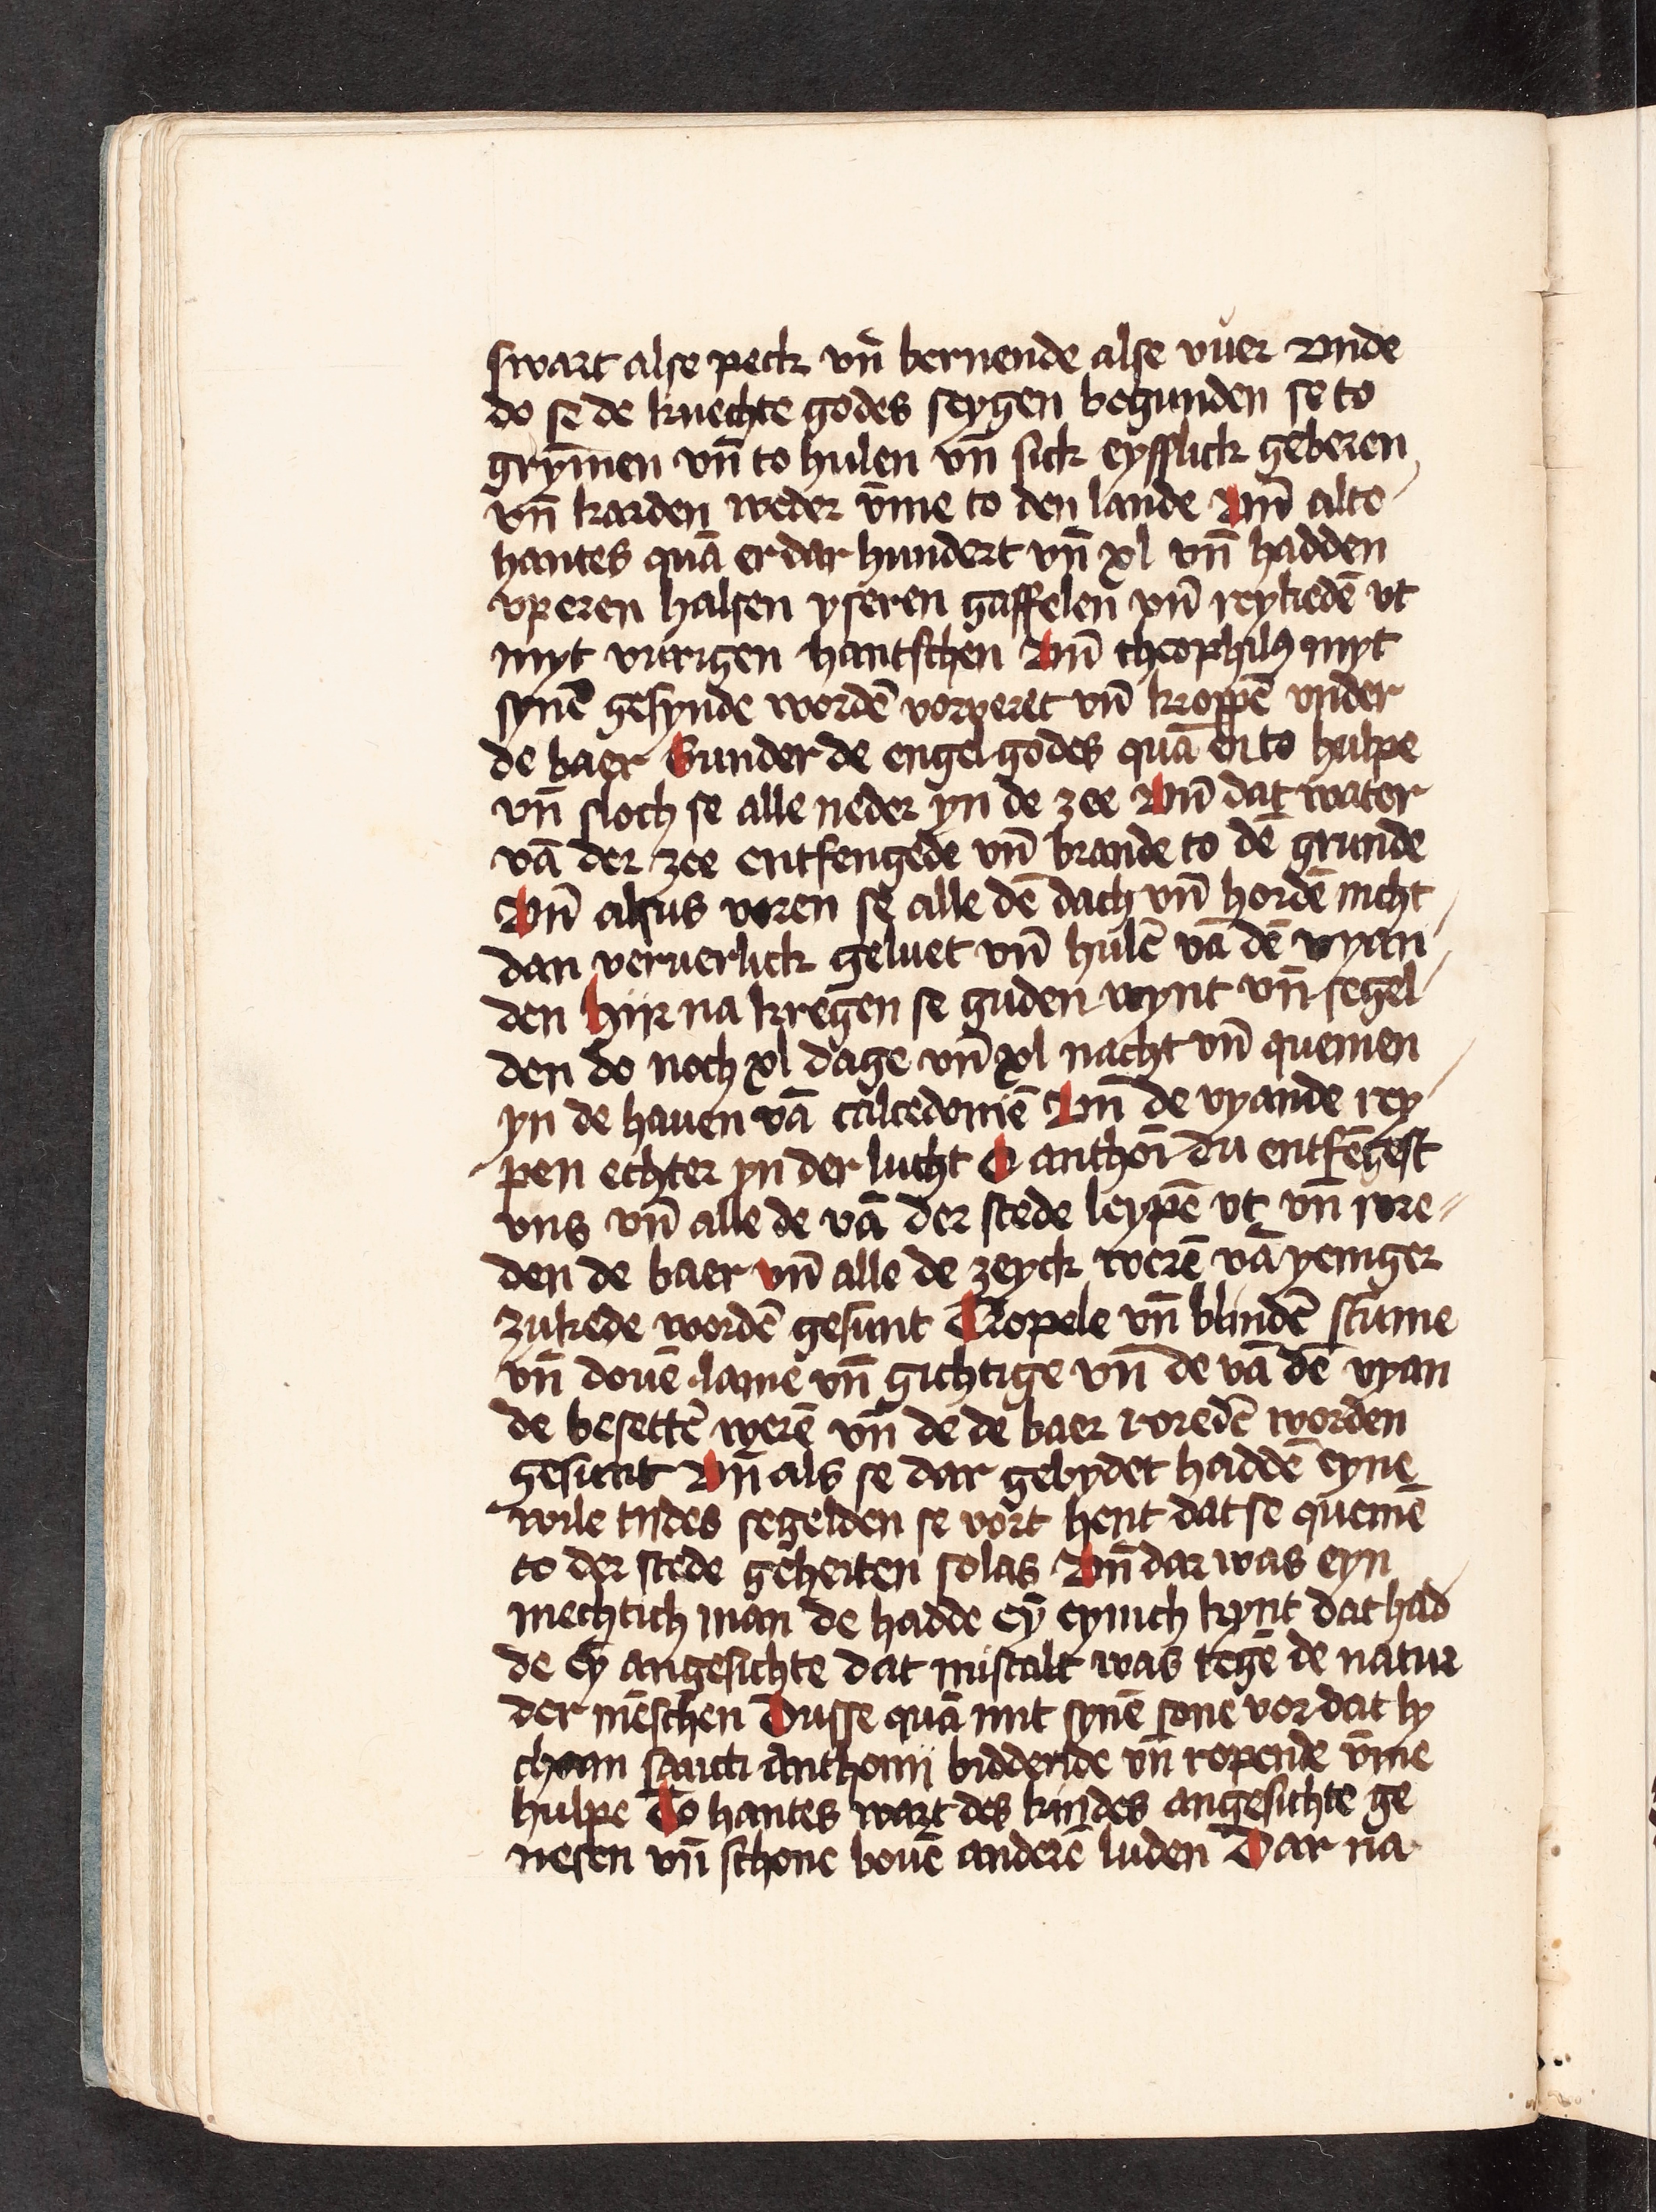 swart alse peck vn̄ bernende alse vuer Vnde
do se de knechte godes seygen begunden se to
grȳmen vn̄ to hulen vn̄ sick eysslick geberen
vn̄ karden weder v̄me to den lande Vn̄ alto
hantes quā er dar hundert vn̄ xl vn̄ hadden
vp eren halsen yseren gaffelen vn̄ reykedē vt
myt vurigen hantschen Vn̄ theophilꝰ myt
synē gesynde wordē vorveret vn̄ kroppē vnder
de baer Sunder de engel godes quā en to hulpe
vn̄ sloch se alle neder yn de zee Vn̄ dat water
vā der zee entfengede vn̄ brande to dē grunde
Vn̄ alsus voren se alle dē dach vn̄ hordē nicht
dan ververlick geluet vn̄ hulē vā dē vyan
den Hiir na kregen se guden wynt vn̄ segel
den do noch xl dage vn̄ xl nacht vn̄ quemen
yn de hauen vā calcedoniē Vn̄ de vyande rey
pen echter yn der lucht O anthoī du entfēgest
vns vn̄ alle de vā der stede leypē vt vn̄ rore
den de baer vn̄ alle de zeyck werē vā yeniger
zukede wordē gesunt Kropele vn̄ blindē stūme
vn̄ douē lame vn̄ gichtige vn̄ de vā dē vyan
de besettē werē vn̄ de de baer roredē worden
gesunt Vn̄ als se dar gebydet haddē eyne
wile tides segelden se vort hent dat se quemē
to der stede geheiten solas Vn̄ dar was eyn
mechtich man de hadde eȳ eynich kynt dat had
de eȳ angesichte dat mistalt was tegē de natur
der mēschen Dusse quā mit synē sone vor dat ly
cham sancti Anthonij biddende vn̄ ropende v̄me
hulpe To hantes wart des kindes angesichte ge
nesen vn̄ schone bouē anderē luden Dar na